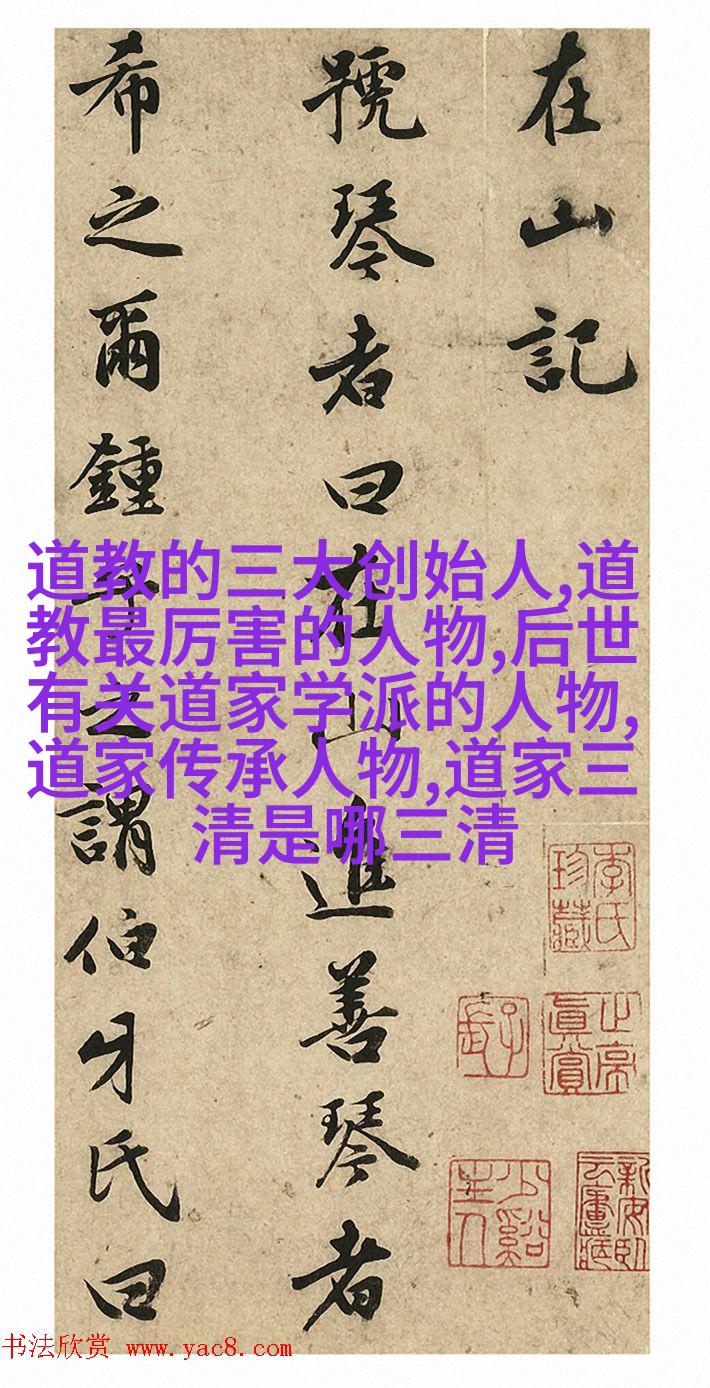 在山記
號琴者曰在山進善琴者
希之爾鍾之謂伯牙氏曰
道教的三大创始人,道
教最厉害的人物,后世
有关道家学派的人物,
道家传承人物,道家三
清是哪三清
真賞
少谿主人
书法欣赏 www.yac8.com